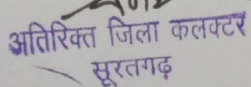 अतिरिक्त जिला कलक्टर
सूरतगढ़